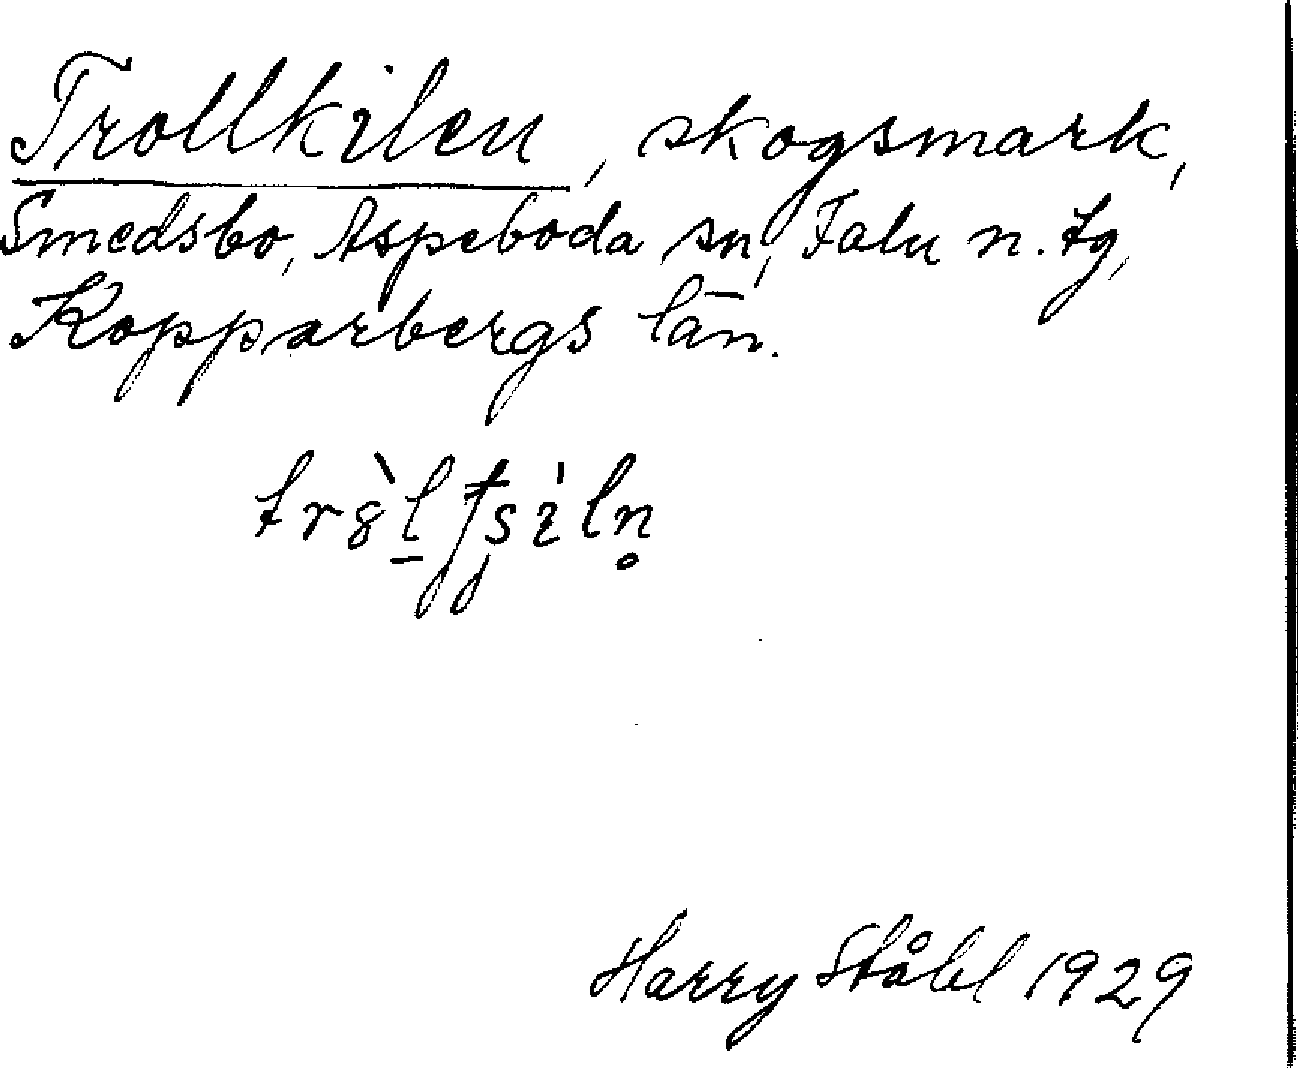 Trollkilen, skogsmark,
Smedsbo, Aspeboda sn, Falu n. tg,
Kopparbergs län.
Harry Ståhl 1929